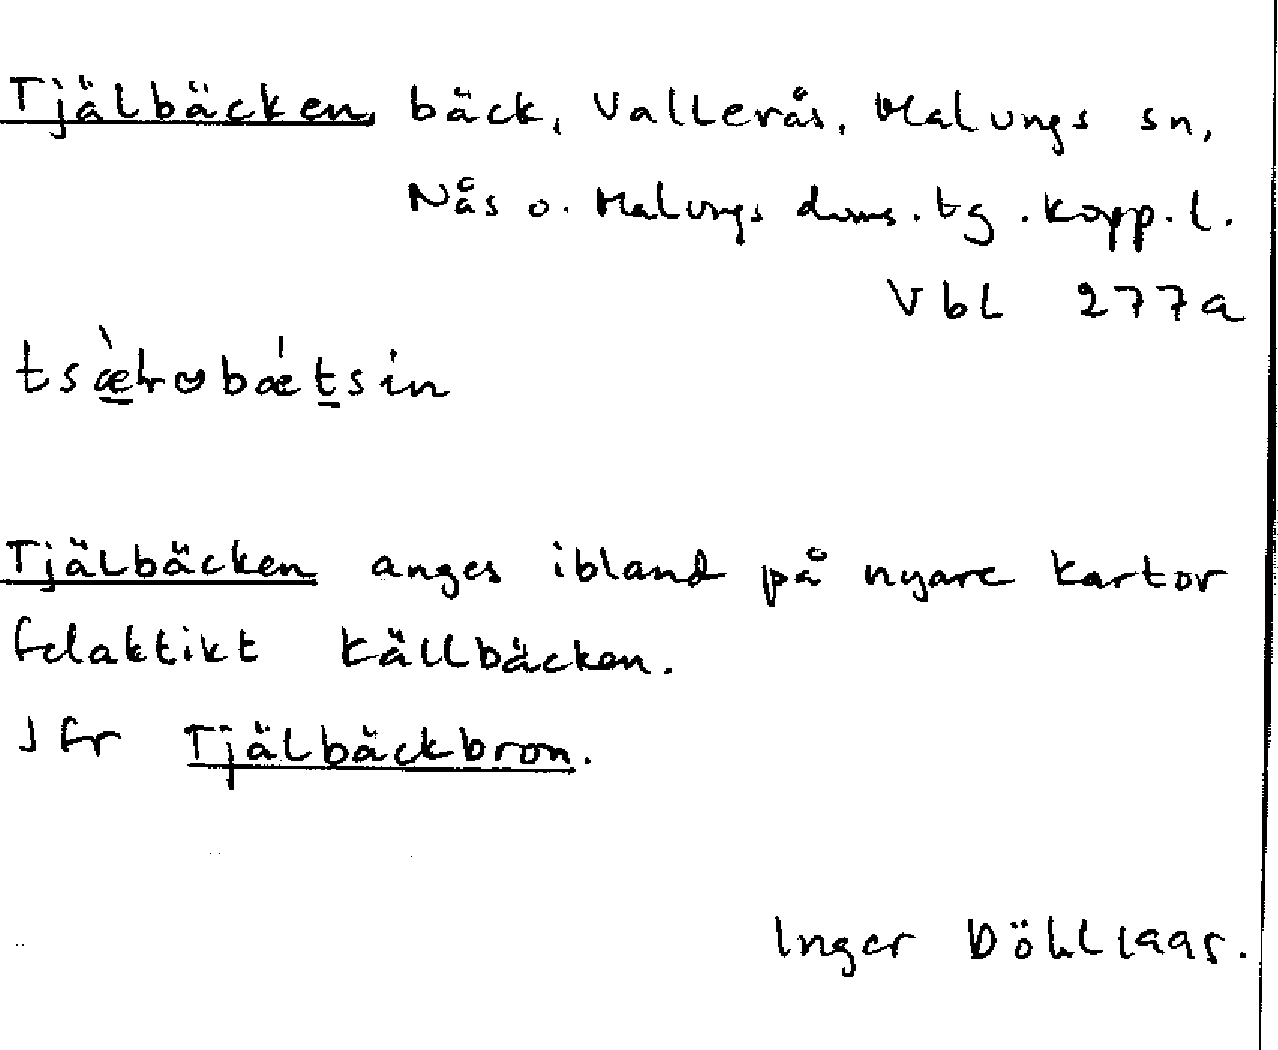 Tjälbäcken, bäck, Vallerås, Malungs sn,
Nås o. Malungs doms. tg. Kopp. l.
Vbl 277a
Tjälbäcken anges ibland på nyare kartor
felaktikt Källbäcken.
Jfr Tjälbäckbron.
Inger Döhl 1995.